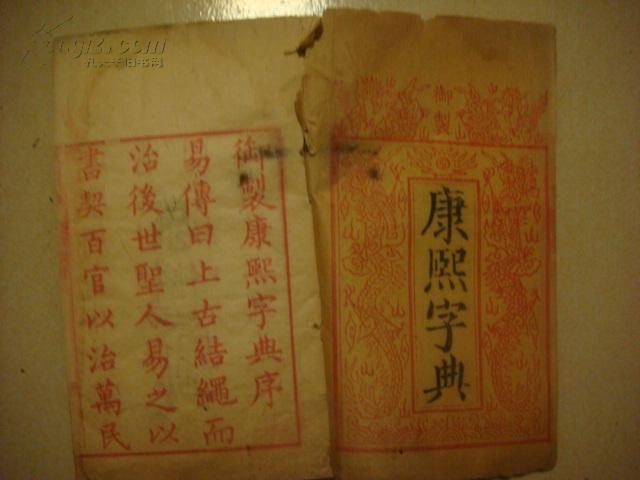 御製
康熙字典
御製康熙字典序
易傳曰上古結繩而
治後世聖人易之以
書契百官以治萬民
孔夫子旧书网